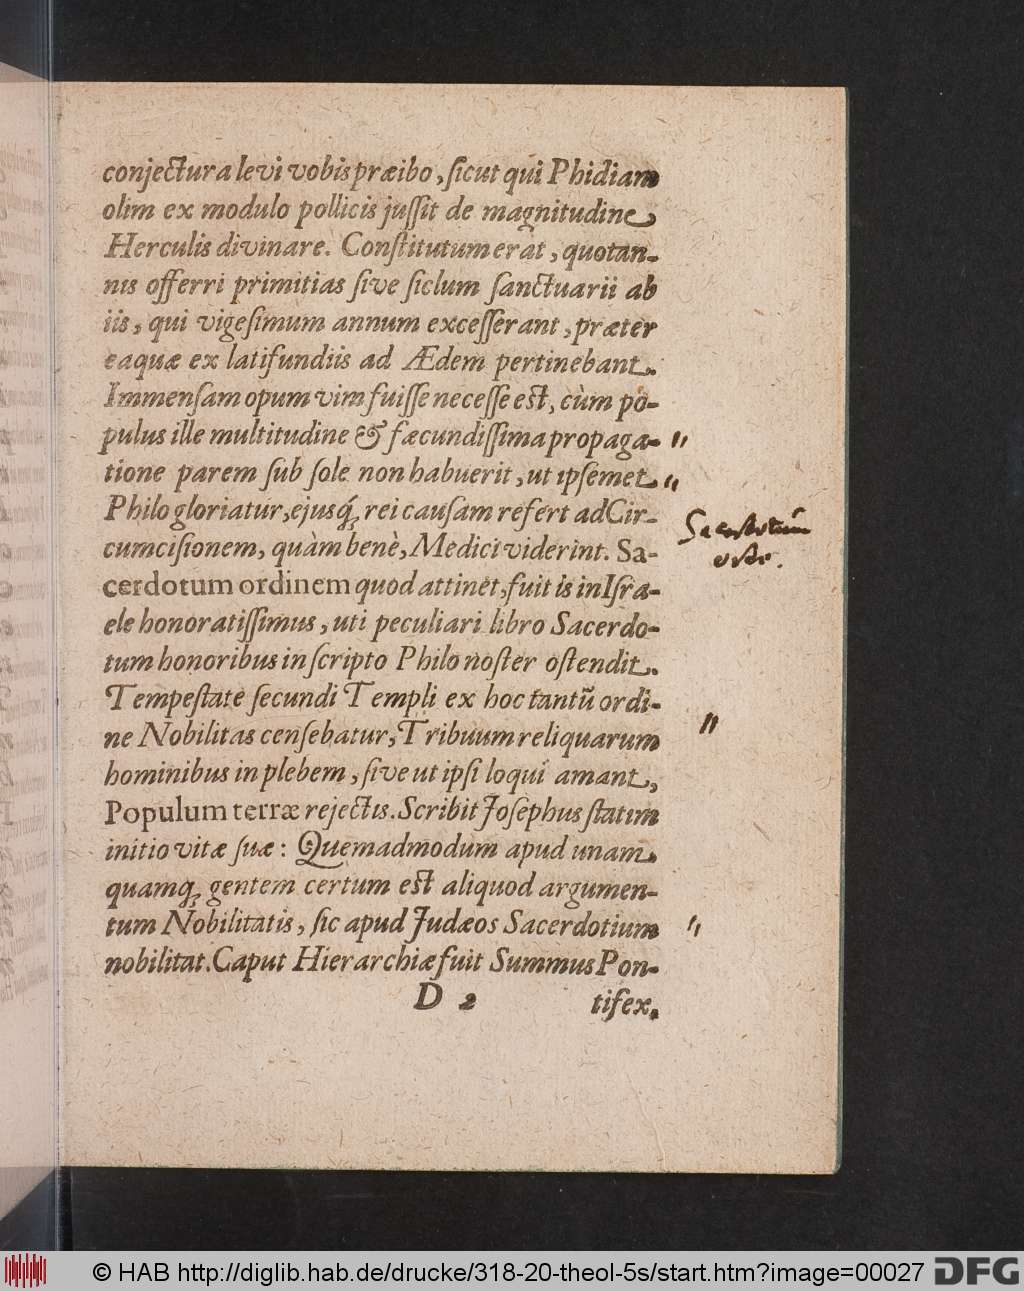 conjectura levi vobis præibo, ſicut qui Phidiam
olim ex modulo pollicis juſſit de magnitudine
Herculis divinare. Conſtitutum erat, quotan-
nis offerri primitias ſive ſiclum ſanctuarii ab
iis, qui vigeſimum annum exceſſerant, præter
ea quæ ex latifundiis ad Ædem pertinebant.
Immenſam opum vim fuiſſe neceſſe eſt, cùm po-
pulus ille multitudine & fæcundiſſima propaga-
tione parem ſub ſole non habuerit, ut ipſemet
Philo gloriatur, ejusq́ꝫ rei cauſam refert ad Cir-
cumciſionem, quàm benè, Medici viderint. Sa-
cerdotum ordinem quod attinet, fuit is in Iſra-
ele honoratiſſimus, uti peculiari libro Sacerdo-
tum honoribus inſcripto Philo noſter oſtendit.
Tempeſtate ſecundi Templi ex hoc tantũ ordi-
ne Nobilitas cenſebatur, Tribuum reliquarum
hominibus in plebem, ſive ut ipſi loqui amant,
Populum terræ rejectis. Scribit Joſephus ſtatim
initio vitæ ſuæ: Quemadmodum apud unam
quamqꝫ gentem certum eſt aliquod argumen-
tum Nobilitatis, ſic apud Judæos Sacerdotium
nobilitat. Caput Hierarchiæ fuit Summus Pon-
D 2 tifex,
Sacerdotum
ordo.
© HAB http://diglib.hab.de/drucke/318-20-theol-5s/start.htm?image=00027
DFG